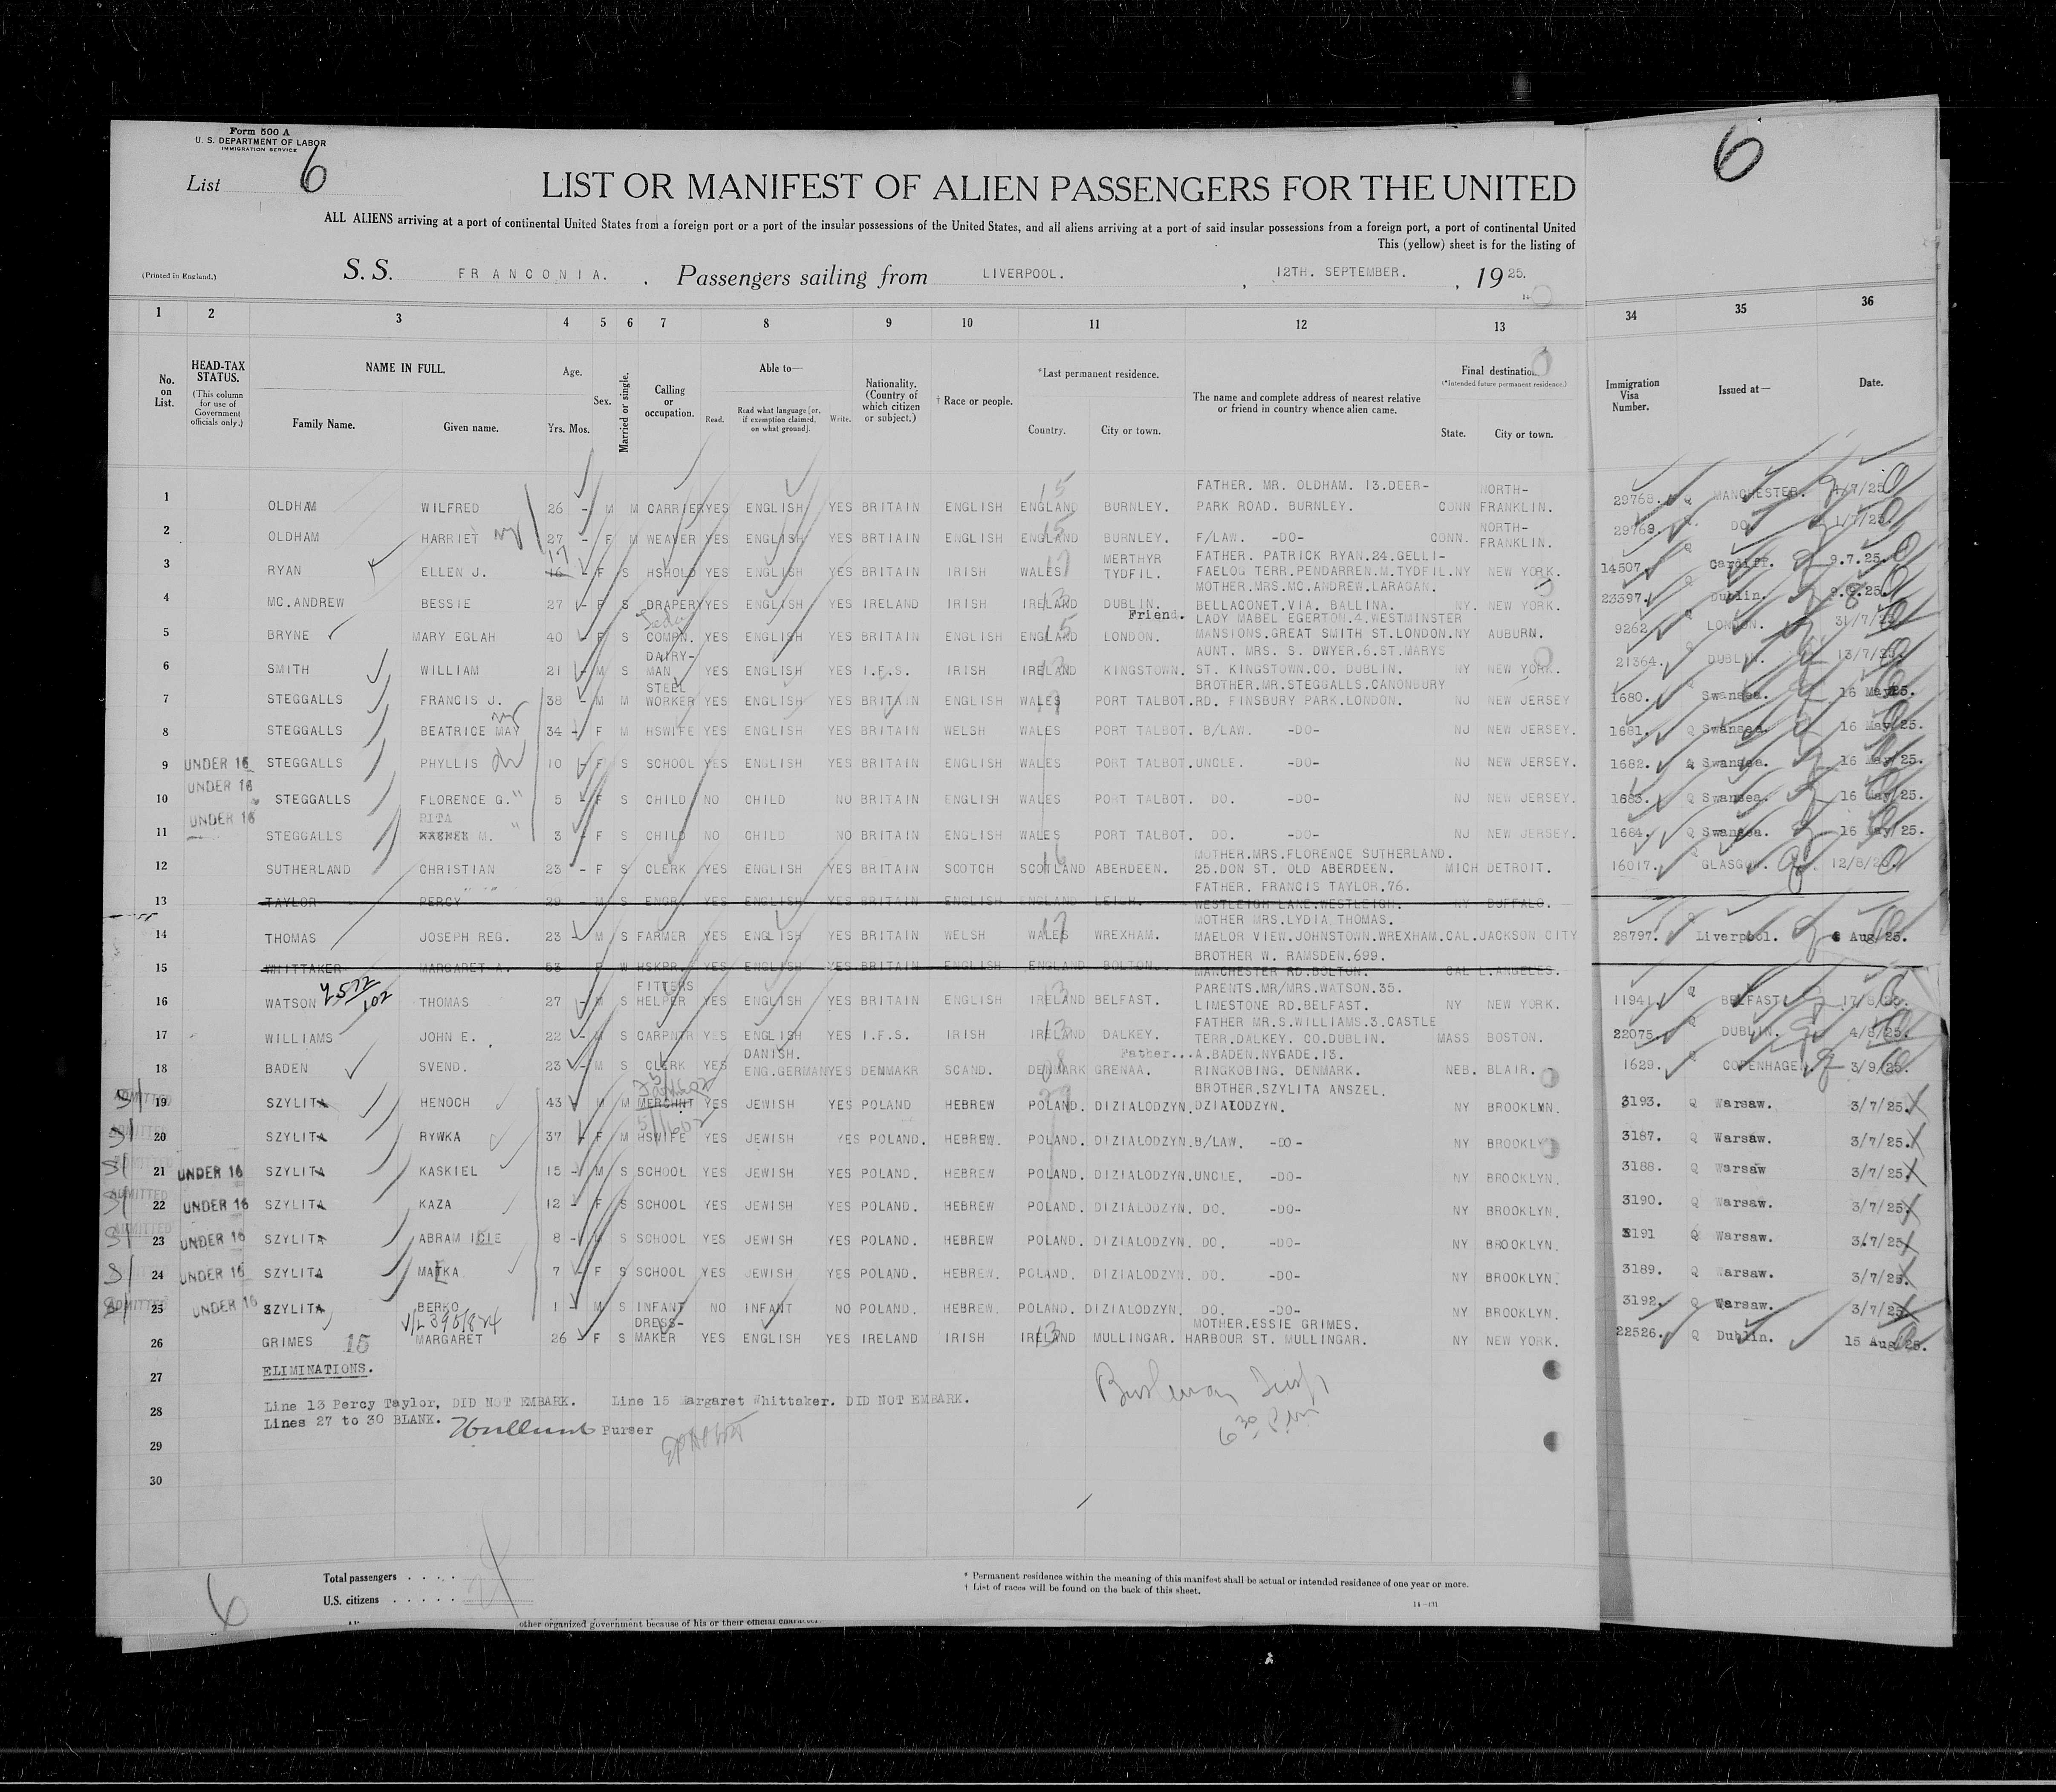 Form 500 A
U. S. DEPARTMENT OF LABOR
IMMIGRATION SERVICE
List 6
6
LIST OR MANIFEST OF ALIEN PASSENGERS FOR THE UNITED
ALL ALIENS arriving at a port of continental United States from a foreign port or a port of the insular possessions of the United States, and all aliens arriving at a port of said insular possessions from a foreign port, a port of continental United
This (yellow) sheet is for the listing of
(Printed in England.) S. S. FRANCONIA. Passengers sailing from LIVERPOOL. , 12TH. SEPTEMBER. , 1925.
1 2 3 4 5 6 7 8 9 10 11 12 13 34 35 36
No. on List.
HEAD-TAX STATUS.
(This column for use of Government officials only.)
NAME IN FULL.
Family Name. Given name.
Age.
Yrs. Mos.
Sex.
Married or single.
Calling or occupation.
Able to—
Read. Read what language [or, if exemption claimed, on what ground]. Write.
Nationality. (Country of which citizen or subject.)
† Race or people.
*Last permanent residence.
Country. City or town.
The name and complete address of nearest relative or friend in country whence alien came.
Final destination
(*Intended future permanent residence.)
State. City or town.
Immigration Visa Number.
Issued at—
Date.
FATHER. MR. OLDHAM. 13.DEER- NORTH-
1 OLDHAM WILFRED 26 - M M CARRIER YES ENGLISH YES BRITAIN ENGLISH ENGLAND BURNLEY. PARK ROAD. BURNLEY. CONN FRANKLIN. 29768. Q MANCHESTER. 1/7/25
NORTH-
2 OLDHAM HARRIET 27 - F M WEAVER YES ENGLISH YES BRTIAIN ENGLISH ENGLAND BURNLEY. F/LAW. -DO- CONN. FRANKLIN. 29769. DO. 1/7/25
17 MERTHYR FATHER. PATRICK RYAN.24.GELLI-
3 RYAN ELLEN J. 16 - F S HSHOLD YES ENGLISH YES BRITAIN IRISH WALES TYDFIL. FAELOG TERR.PENDARREN.M.TYDFIL.NY NEW YORK. 14507. Q Cardiff. 9.7.25.
MOTHER.MRS.MC.ANDREW.LARAGAN.
4 MC.ANDREW BESSIE 27 - F S DRAPERY YES ENGLISH YES IRELAND IRISH IRELAND DUBLIN. BELLACONET.VIA. BALLINA. NY. NEW YORK. 23397. Q Dublin. 9.9.25.
Friend. LADY MABEL EGERTON.4.WESTMINSTER
5 BRYNE MARY EGLAH 40 - F S COMPN. YES ENGLISH YES BRITAIN ENGLISH ENGLAND LONDON. MANSIONS.GREAT SMITH ST.LONDON.NY AUBURN. 9262. Q LONDON. 31/7/25
DAIRY- AUNT. MRS. S. DWYER.6.ST.MARYS
6 SMITH WILLIAM 21 - M S MAN YES ENGLISH YES I.F.S. IRISH IRELAND KINGSTOWN. ST. KINGSTOWN.CO. DUBLIN. NY NEW YORK. 21364. Q DUBLIN. 13/7/25
STEEL BROTHER.MR.STEGGALLS.CANONBURY
7 STEGGALLS FRANCIS J. 38 - M M WORKER YES ENGLISH YES BRITAIN ENGLISH WALES PORT TALBOT. RD. FINSBURY PARK.LONDON. NJ NEW JERSEY 1680. Swansea. 16 May 25.
8 STEGGALLS BEATRICE MAY 34 - F M HSWIFE YES ENGLISH YES BRITAIN WELSH WALES PORT TALBOT. B/LAW. -DO- NJ NEW JERSEY. 1681. Q Swansea. 16 May/25.
9 UNDER 16 STEGGALLS PHYLLIS 10 - F S SCHOOL YES ENGLISH YES BRITAIN ENGLISH WALES PORT TALBOT. UNCLE. -DO- NJ NEW JERSEY. 1682. Q Swansea. 16 May/25.
10 UNDER 16 STEGGALLS FLORENCE G. " 5 - F S CHILD NO CHILD NO BRITAIN ENGLISH WALES PORT TALBOT. DO. -DO- NJ NEW JERSEY. 1683. Q Swansea. 16 May/25.
RITA
11 UNDER 16 STEGGALLS M. " 3 - F S CHILD NO CHILD NO BRITAIN ENGLISH WALES PORT TALBOT. DO. -DO- NJ NEW JERSEY. 1684. Q Swansea. 16 May/25.
MOTHER.MRS.FLORENCE SUTHERLAND.
12 SUTHERLAND CHRISTIAN 23 - F S CLERK YES ENGLISH YES BRITAIN SCOTCH SCOTLAND ABERDEEN. 25.DON ST. OLD ABERDEEN. MICH DETROIT. 16017. Q GLASGOW. 12/8/25
FATHER. FRANCIS TAYLOR.76.
13 TAYLOR PERCY 29 - M S ENGR. YES ENGLISH YES BRITAIN ENGLISH ENGLAND LEIGH. WESTLEIGH LANE.WESTLEIGH. NY BUFFALO.
MOTHER MRS.LYDIA THOMAS.
14 THOMAS JOSEPH REG. 23 - M S FARMER YES ENGLISH YES BRITAIN WELSH WALES WREXHAM. MAELOR VIEW.JOHNSTOWN.WREXHAM.CAL.JACKSON CITY 28797. Q Liverpool. Aug/25.
BROTHER W. RAMSDEN.699.
15 WHITTAKER MARGARET A. 53 F W HSKPR. YES ENGLISH YES BRITAIN ENGLISH ENGLAND BOLTON. MANCHESTER RD.BOLTON. CAL L.ANGELES.
FITTERS PARENTS.MR/MRS.WATSON.35.
16 WATSON THOMAS 27 - M S HELPER YES ENGLISH YES BRITAIN ENGLISH IRELAND BELFAST. LIMESTONE RD.BELFAST. NY NEW YORK. 11941. Q BELFAST. 17/8/25.
FATHER MR.S.WILLIAMS.3.CASTLE
17 WILLIAMS JOHN E. 22 - M S CARPNTR YES ENGLISH YES I.F.S. IRISH IRELAND DALKEY. TERR.DALKEY. CO.DUBLIN. MASS BOSTON. 22075. Q DUBLIN. 4/8/25.
DANISH. Father...A.BADEN.NYGADE.13.
18 BADEN SVEND. 23 - M S CLERK YES ENG.GERMAN YES DENMAKR SCAND. DENMARK GRENAA. RINGKOBING. DENMARK. NEB. BLAIR. 1629. Q COPENHAGEN 3/9/25.
BROTHER.SZYLITA ANSZEL.
19 ADMITTED SZYLITA HENOCH 43 M M MERCHNT YES JEWISH YES POLAND HEBREW POLAND. DIZIALODZYN. DZIALODZYN. NY BROOKLYN. 3193. Q Warsaw. 3/7/25.
20 ADMITTED SZYLITA RYWKA 37 - F M HSWIFE YES JEWISH YES POLAND. HEBREW. POLAND. DIZIALODZYN. B/LAW. -DO- NY BROOKLY 3187. Q Warsaw. 3/7/25.
21 UNDER 16 SZYLITA KASKIEL 15 - M S SCHOOL YES JEWISH YES POLAND. HEBREW POLAND. DIZIALODZYN. UNCLE. -DO- NY BROOKLYN. 3188. Q Warsaw 3/7/25.
22 ADMITTED UNDER 16 SZYLITA KAZA 12 - F S SCHOOL YES JEWISH YES POLAND. HEBREW POLAND. DIZIALODZYN. DO. -DO- NY BROOKLYN. 3190. Q Warsaw. 3/7/25.
23 ADMITTED UNDER 16 SZYLITA ABRAM ICIE 8 - M S SCHOOL YES JEWISH YES POLAND. HEBREW POLAND. DIZIALODZYN. DO. -DO- NY BROOKLYN. 3191 Q Warsaw. 3/7/25.
24 UNDER 16 SZYLITA 7 - F S SCHOOL YES JEWISH YES POLAND. HEBREW. POLAND. DIZIALODZYN. DO. -DO- NY BROOKLYN. 3189. Q Warsaw. 3/7/25.
25 ADMITTED UNDER 16 SZYLITA BERKO 1 - M S INFANT NO INFANT NO POLAND. HEBREW. POLAND. DIZIALODZYN. DO. -DO- NY BROOKLYN. 3192. Q Warsaw. 3/7/25
DRESS- MOTHER.ESSIE GRIMES.
26 GRIMES 15 MARGARET 26 F S MAKER YES ENGLISH YES IRELAND IRISH IRELAND MULLINGAR. HARBOUR ST. MULLINGAR. NY NEW YORK. 22526. Q Dublin. 15 Aug/25.
27 ELIMINATIONS.
28 Line 13 Percy Taylor, DID NOT EMBARK. Line 15 Margaret Whittaker. DID NOT EMBARK.
Lines 27 to 30 BLANK. Purser
29
30
Total passengers . . . .
U.S. citizens . . . . .
6
* Permanent residence within the meaning of this manifest shall be actual or intended residence of one year or more.
† List of races will be found on the back of this sheet.
other organized government because of his or their official character.